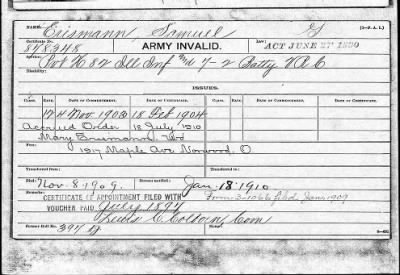 NAME: Erismann Samuel G (3-P. A. L.)
Certificate No. 848348 ARMY INVALID. Law: ACT JUNE 27 1890
Service: Pvt K 82 Ill Inf and 7-2 Batty V R C
Disability:
ISSUES.
CLASS. RATE. DATE OF COMMENCEMENT. DATE OF CERTIFICATE. CLASS. RATE. DATE OF COMMENCEMENT. DATE OF CERTIFICATE.
12 4 Nov 1903 18 Feb 1904
Accrued Order 18 July 1910
Mary Erismann
1917 Maple Ave Norwood, O
TRANSFERRED
Died: Nov-8-1909. Bureau notified: Jan. 18 1910
CERTIFICATE OF APPOINTMENT FILED WITH From 3-1066 filed Jan 1909
VOUCHER PAID July 1897
Lewis C. Colborn Com
Former Roll No. 397